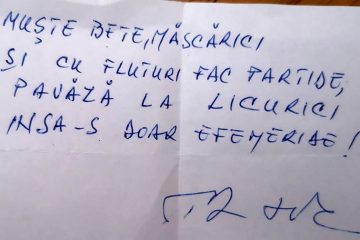 MUȘTE BETE, MĂSCĂRICI
ȘI CU FLUTURI FAC PARTIDE,
PAVĂZĂ LA LICURICI
INSA-S DOAR EFEMERIDE!